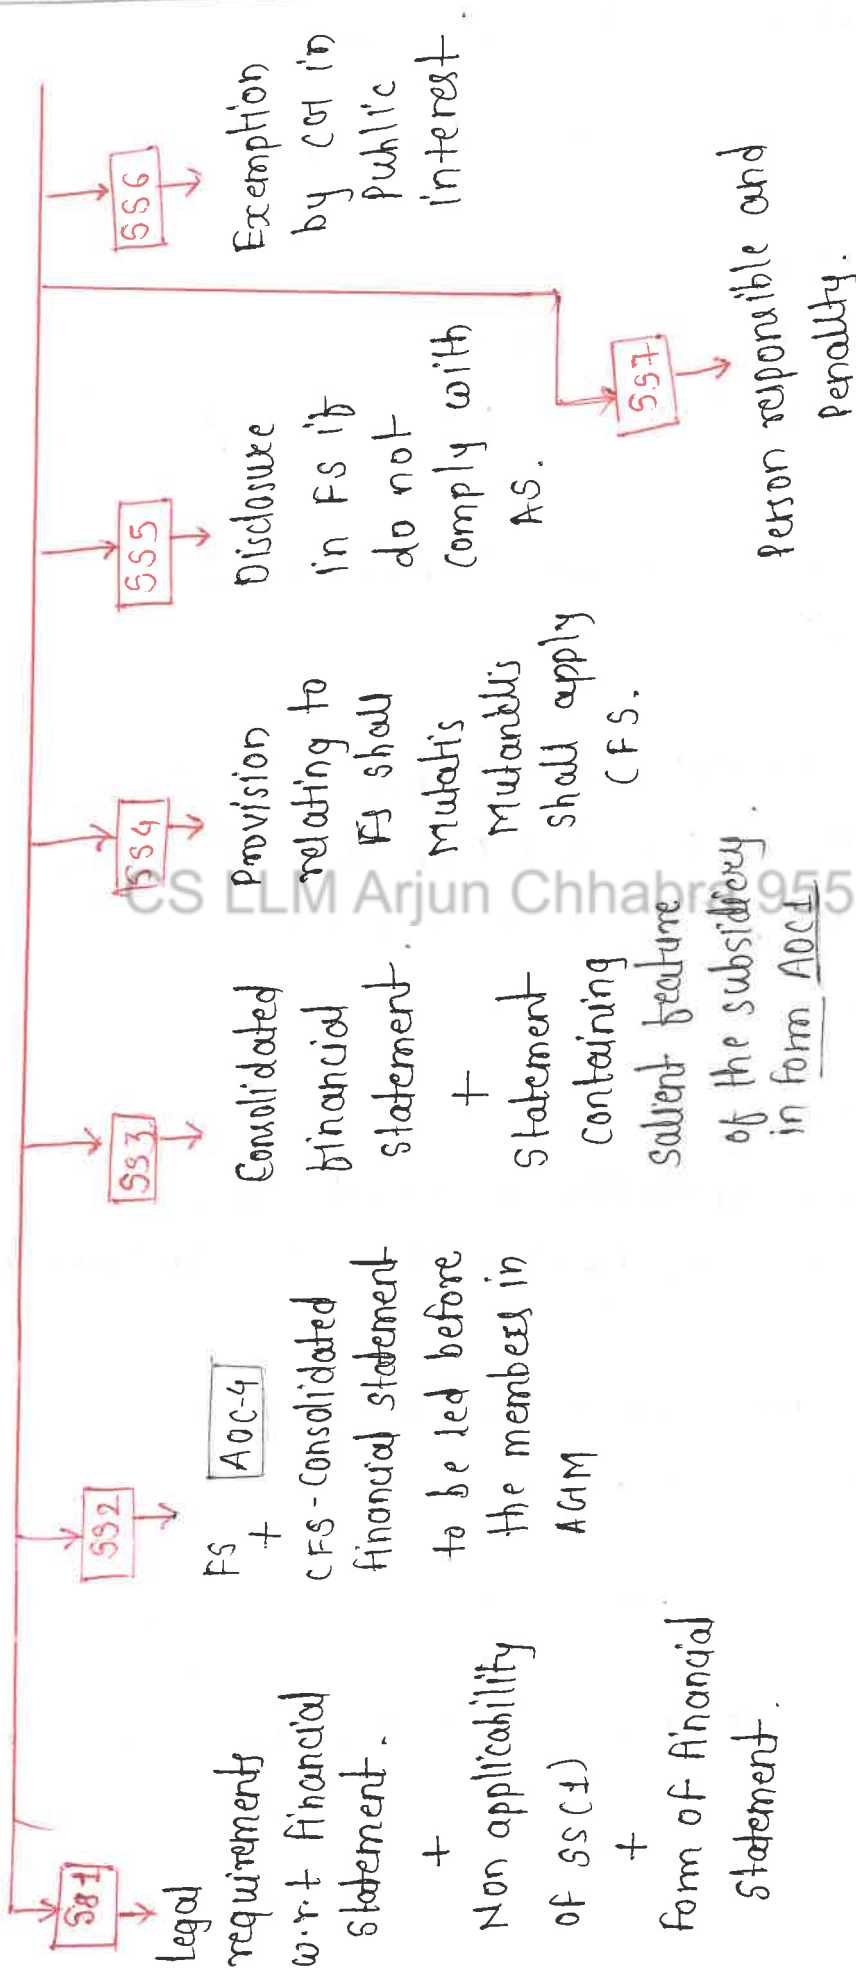 SS1
Legal
requirements
w.r.t financial
statement.
+
Non applicability
of SS(1)
+
Form of financial
statement.
SS2
FS AOC-4
+
CFS-Consolidated
financial statement
to be led before
the members in
AGM
SS3
Consolidated
financial
statement.
+
Statement
containing
salient feature
of the subsidiery.
in form AOC1
SS4
Provision
relating to
FS shall
Mutatis
Mutandis
shall apply
CFS.
SS5
Disclosure
in FS if
do not
comply with
AS.
SS6
Exemption
by CG in
Public
interest
SS7
Person responsible and
Penalty.
CS LLM Arjun Chhabra 955